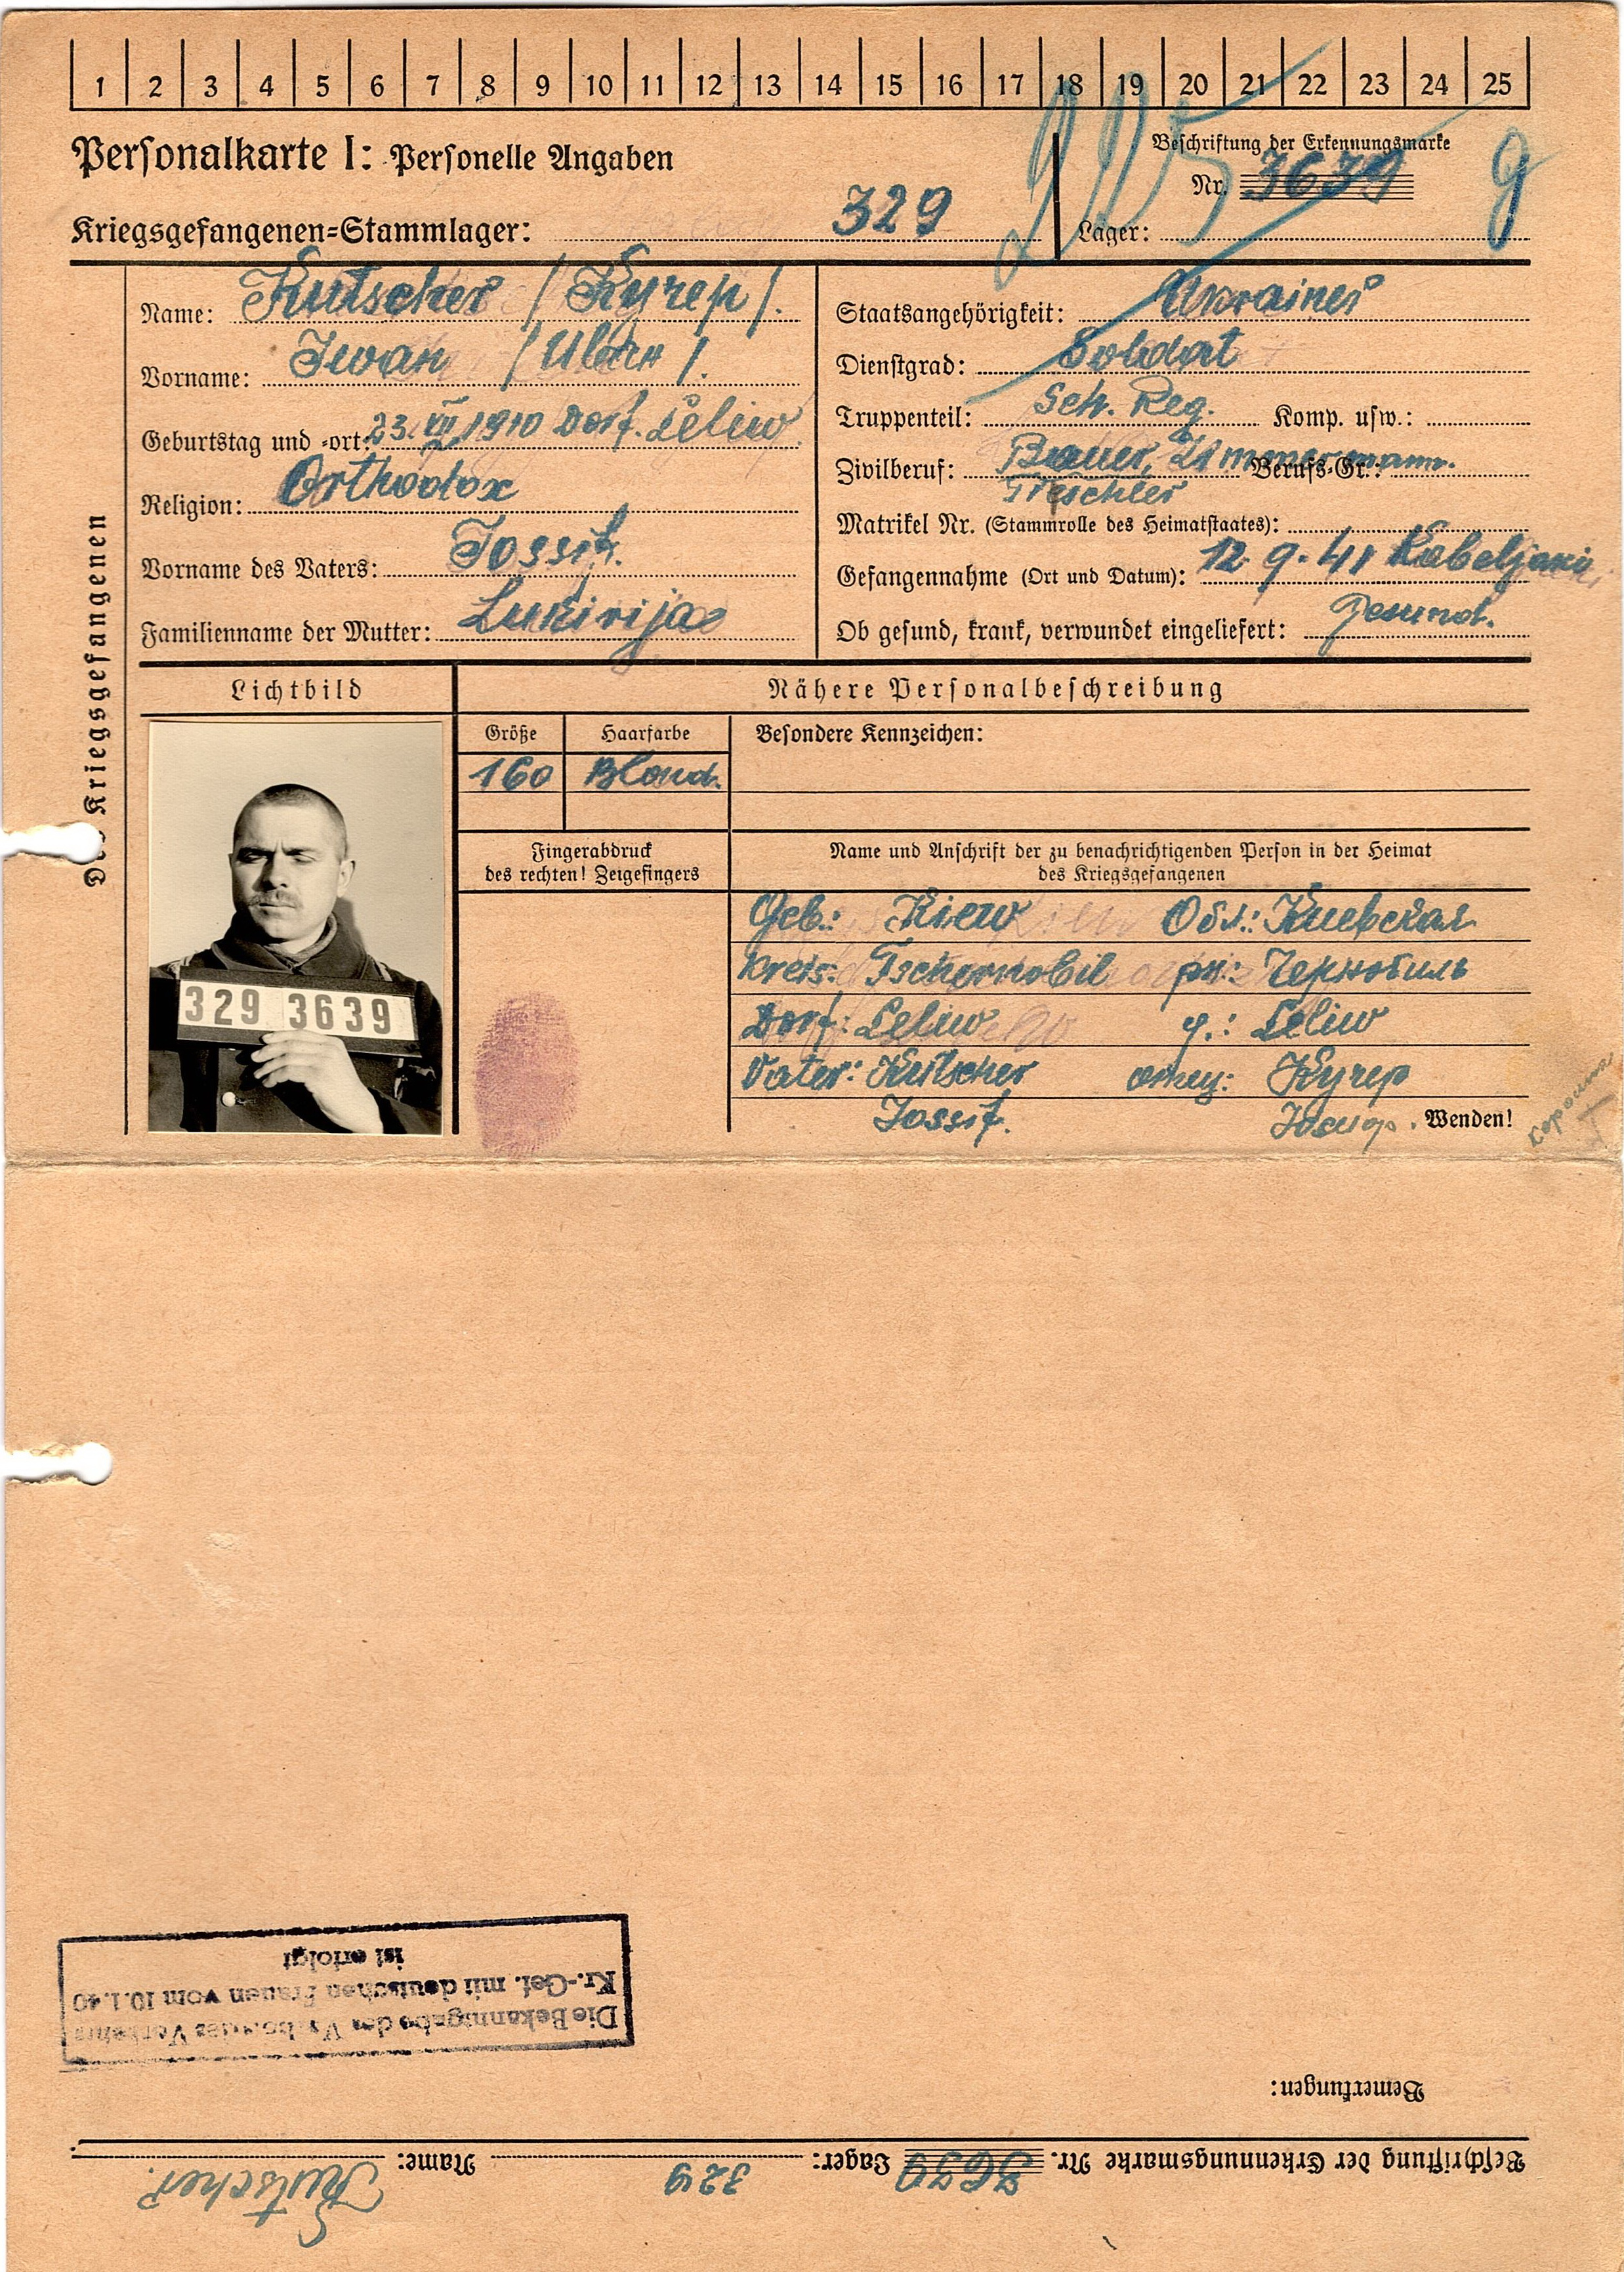 1 2 3 4 5 6 7 8 9 10 11 12 13 14 15 16 17 18 19 20 21 22 23 24 25
Personalkarte I: Personelle Angaben
Beschriftung der Erkennungsmarke
Nr. 3639
Kriegsgefangenen=Stammlager: 329
Lager:
Des Kriegsgefangenen
Name: Kutscher /Кучер/.
Vorname: Iwan /Иван/.
Geburtstag und -ort: 23. VII 1910 Dorf. Leliw
Religion: Orthodox
Vorname des Vaters: Jossif.
Familienname der Mutter: Lukirija
Staatsangehörigkeit: Ukrainer
Dienstgrad: Soldat
Truppenteil: Sch. Reg. Komp. usw.:
Zivilberuf: Bauer, Zimmermann. Berufs-Gr.:
Tischler
Matrikel Nr. (Stammrolle des Heimatstaates):
Gefangennahme (Ort und Datum): 12. 9. 41 Kobeljaki
Ob gesund, krank, verwundet eingeliefert: Gesund.
Lichtbild
Nähere Personalbeschreibung
Größe
Haarfarbe
Besondere Kennzeichen:
160 Blond.
Fingerabdruck
des rechten! Zeigefingers
Name und Anschrift der zu benachrichtigenden Person in der Heimat
des Kriegsgefangenen
Geb.: Kiew Обл.: Киевская
Kreis: Tschernobil рн.: Чернобиль
Dorf: Leliw Leliw
Vater: Kutscher отец: Кучер
Jossif. Иосиф. Wenden!
329 3639
Die Bekanntgabe des Verbotes des Verkehrs
Kr.-Gef. mit deutschen Frauen vom 10.1.40
ist erfolgt
Bemerkungen:
Beschriftung der Erkennungsmarke Nr. 3639 Lager: 329 Name: Kutscher.